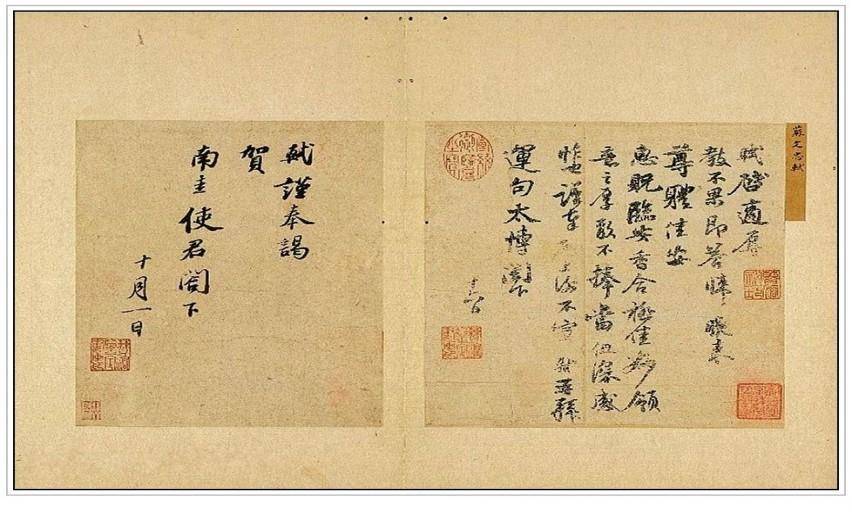 蘇文忠軾
軾啟適辱
教不果即答
尊體佳安
惠貺臨安香合極佳妙領
意之厚敢不捧當但深感
怍也謹奉啟上謝不宣軾再拜
運句太博閣下
軾謹奉謁
賀
南圭使君閣下
十月一日